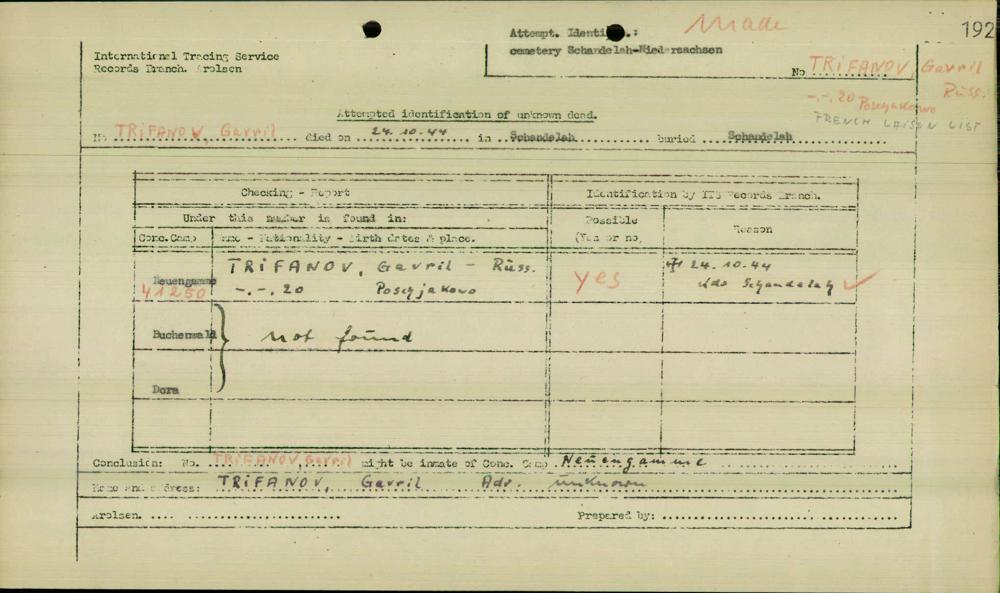 192
Attempt. Identi .: Made
cemetery Schandelah-Niedersachsen
International Tracing Service
Records Branch. Arolsen
No TRIFANOV, Gavril
Rüss.
-.-.20 Poschjakowo
FRENCH LAISON LIST
Attempted identification of unknown dead.
No TRIFANOV, Gavril died on 24.10.44 in Schandelah buried Schandelah
Checking - Report
Identification by ITS Records Branch.
Under this number is found in:
Possible
(Yes or no,
Reason
Conc.Camp
Name - Nationality - Birth dates & place.
Neuengamme
41250
TRIFANOV, Gavril - Rüss.
-.-.20 Poschjakowo
yes
24.10.44
Kdo Schandelah
Buchenwald
not found
Dora
Conclusion: No. TRIFANOV, Gavril might be inmate of Conc. Camp Neuengamme
Name and address: TRIFANOV, Gavril Adr. unknown
Arolsen.
Prepared by: